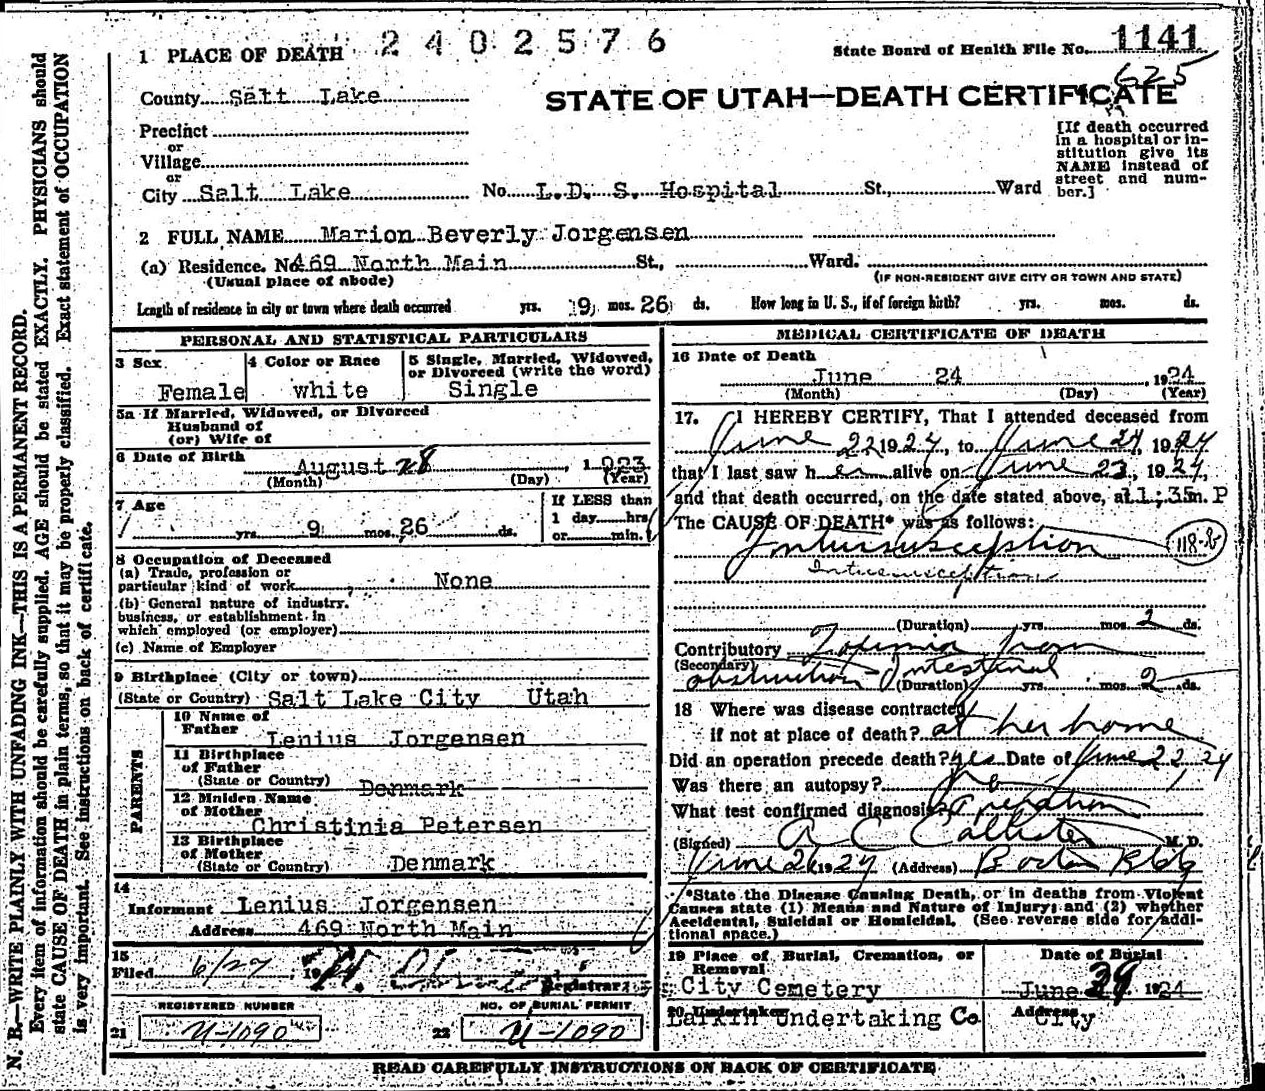 1 PLACE OF DEATH 2402576
State Board of Health File No. 1141
625
County Salt Lake
STATE OF UTAH—DEATH CERTIFICATE
Precinct
or
Village
or
City Salt Lake No. L.D. S. Hospital St., Ward
[If death occurred
in a hospital or in-
stitution give its
NAME instead of
street and num-
ber.]
2 FULL NAME Marion Beverly Jorgensen
(a) Residence. No. 469 North Main St., Ward.
(Usual place of abode)
(IF NON-RESIDENT GIVE CITY OR TOWN AND STATE)
Length of residence in city or town where death occurred yrs. 9 mos. 26 ds. How long in U. S., if of foreign birth? yrs. mos. ds.
PERSONAL AND STATISTICAL PARTICULARS
3 Sex
Female
4 Color or Race
white
5 Single, Married, Widowed,
or Divorced (write the word)
Single
5a If Married, Widowed, or Divorced
Husband of
(or) Wife of
6 Date of Birth
August 28, 1923
(Month) (Day) (Year)
7 Age
yrs. 9 mos. 26 ds.
If LESS than
1 day hrs.
or min.
8 Occupation of Deceased
(a) Trade, profession or
particular kind of work None
(b) General nature of industry,
business, or establishment in
which employed (or employer)
(c) Name of Employer
9 Birthplace (City or town)
(State or Country) Salt Lake City Utah
PARENTS
10 Name of
Father Lenius Jorgensen
11 Birthplace
of Father
(State or Country) Denmark
12 Maiden Name
of Mother
Christinia Petersen
13 Birthplace
of Mother
(State or Country) Denmark
14
Informant Lenius Jorgensen
Address 469 North Main
15
Filed 6/27, 19
Registrar
REGISTERED NUMBER
21 U-1090
NO. OF BURIAL PERMIT
22 U-1090
MEDICAL CERTIFICATE OF DEATH
16 Date of Death
June 24, 1924
(Month) (Day) (Year)
17. I HEREBY CERTIFY, That I attended deceased from
June 22 1924, to June 24, 1924
that I last saw her alive on June 23, 1924,
and that death occurred, on the date stated above, at 11;35 m. P
The CAUSE OF DEATH* was as follows:
Intussusception
118-b
Intussusception
(Duration) yrs. mos. 2 ds.
Contributory Toxemia from
(Secondary)
obstruction Intestinal
(Duration) yrs. mos. 2 ds.
18 Where was disease contracted
if not at place of death? at her home
Did an operation precede death? yes Date of June 22, 24
Was there an autopsy? No
What test confirmed diagnosis? Operation
(Signed) A C Callister M. D.
June 26 1924 (Address) Boston Bldg
*State the Disease Causing Death, or in deaths from Violent
Causes state (1) Means and Nature of Injury; and (2) whether
Accidental, Suicidal or Homicidal. (See reverse side for addi-
tional space.)
19 Place of Burial, Cremation, or
Removal
City Cemetery
Date of Burial
June 1924
20 Undertaker
Larkin Undertaking Co
Address
City
READ CAREFULLY INSTRUCTIONS ON BACK OF CERTIFICATE
N. B.—WRITE PLAINLY WITH UNFADING INK—THIS IS A PERMANENT RECORD.
Every item of information should be carefully supplied. AGE should be stated EXACTLY. PHYSICIANS should
state CAUSE OF DEATH in plain terms, so that it may be properly classified. Exact statement of OCCUPATION
is very important. See instructions on back of certificate.